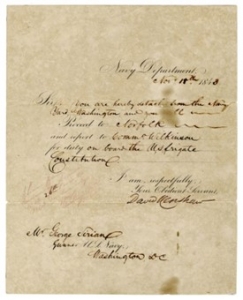 Navy Department,
Novr 18th 1843
Sir,
you are hereby detached from the Navy
Yard, Washington and you will
Proceed to Norfolk
and report to Commre Wilkinson
for duty on board the US frigate
Constitution
I am, respectfully
Your Obedient Servant,
David Henshaw
Mr George Sirian
Gunner U.S. Navy,
Washington D C